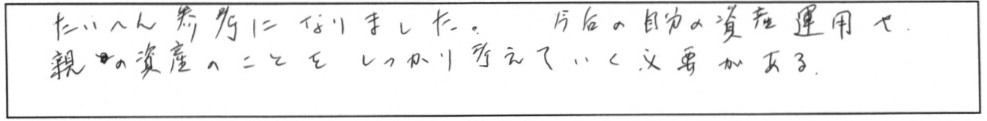 たいへん参考になりました。 今后の自分の資産運用や
親の資産のことをしっかり考えていく必要がある。